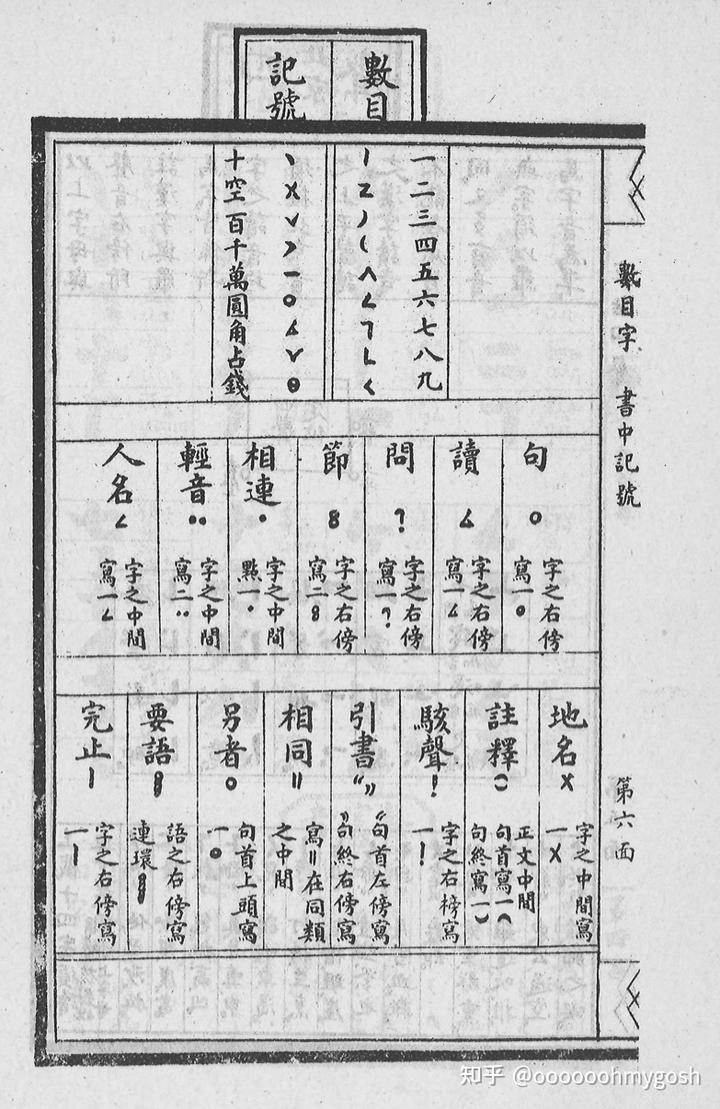 數目
記號
數目字 書中記號
第六面
一二三四五六七八九
十空百千萬圓角占錢
句 o
字之右傍
寫一o
讀 ∠
字之右傍
寫一∠
問 ?
字之右傍
寫一?
節 8
字之右傍
寫二8
相連 •
字之中間
點一•
輕音 ••
字之中間
寫二••
人名 ∠
字之中間
寫一∠
地名 x
字之中間寫
一x
註釋 ()
正文中間
句首寫一(
句終寫一)
駭聲 !
字之右榜寫
一!
引書 “”
“句首左傍寫
”句終右傍寫
相同 ||
寫||在同類
之中間
另者 o
句首上頭寫
一o
要語
語之右傍寫
連環
完止 |
字之右傍寫
一|
知乎 @oooooohmygosh